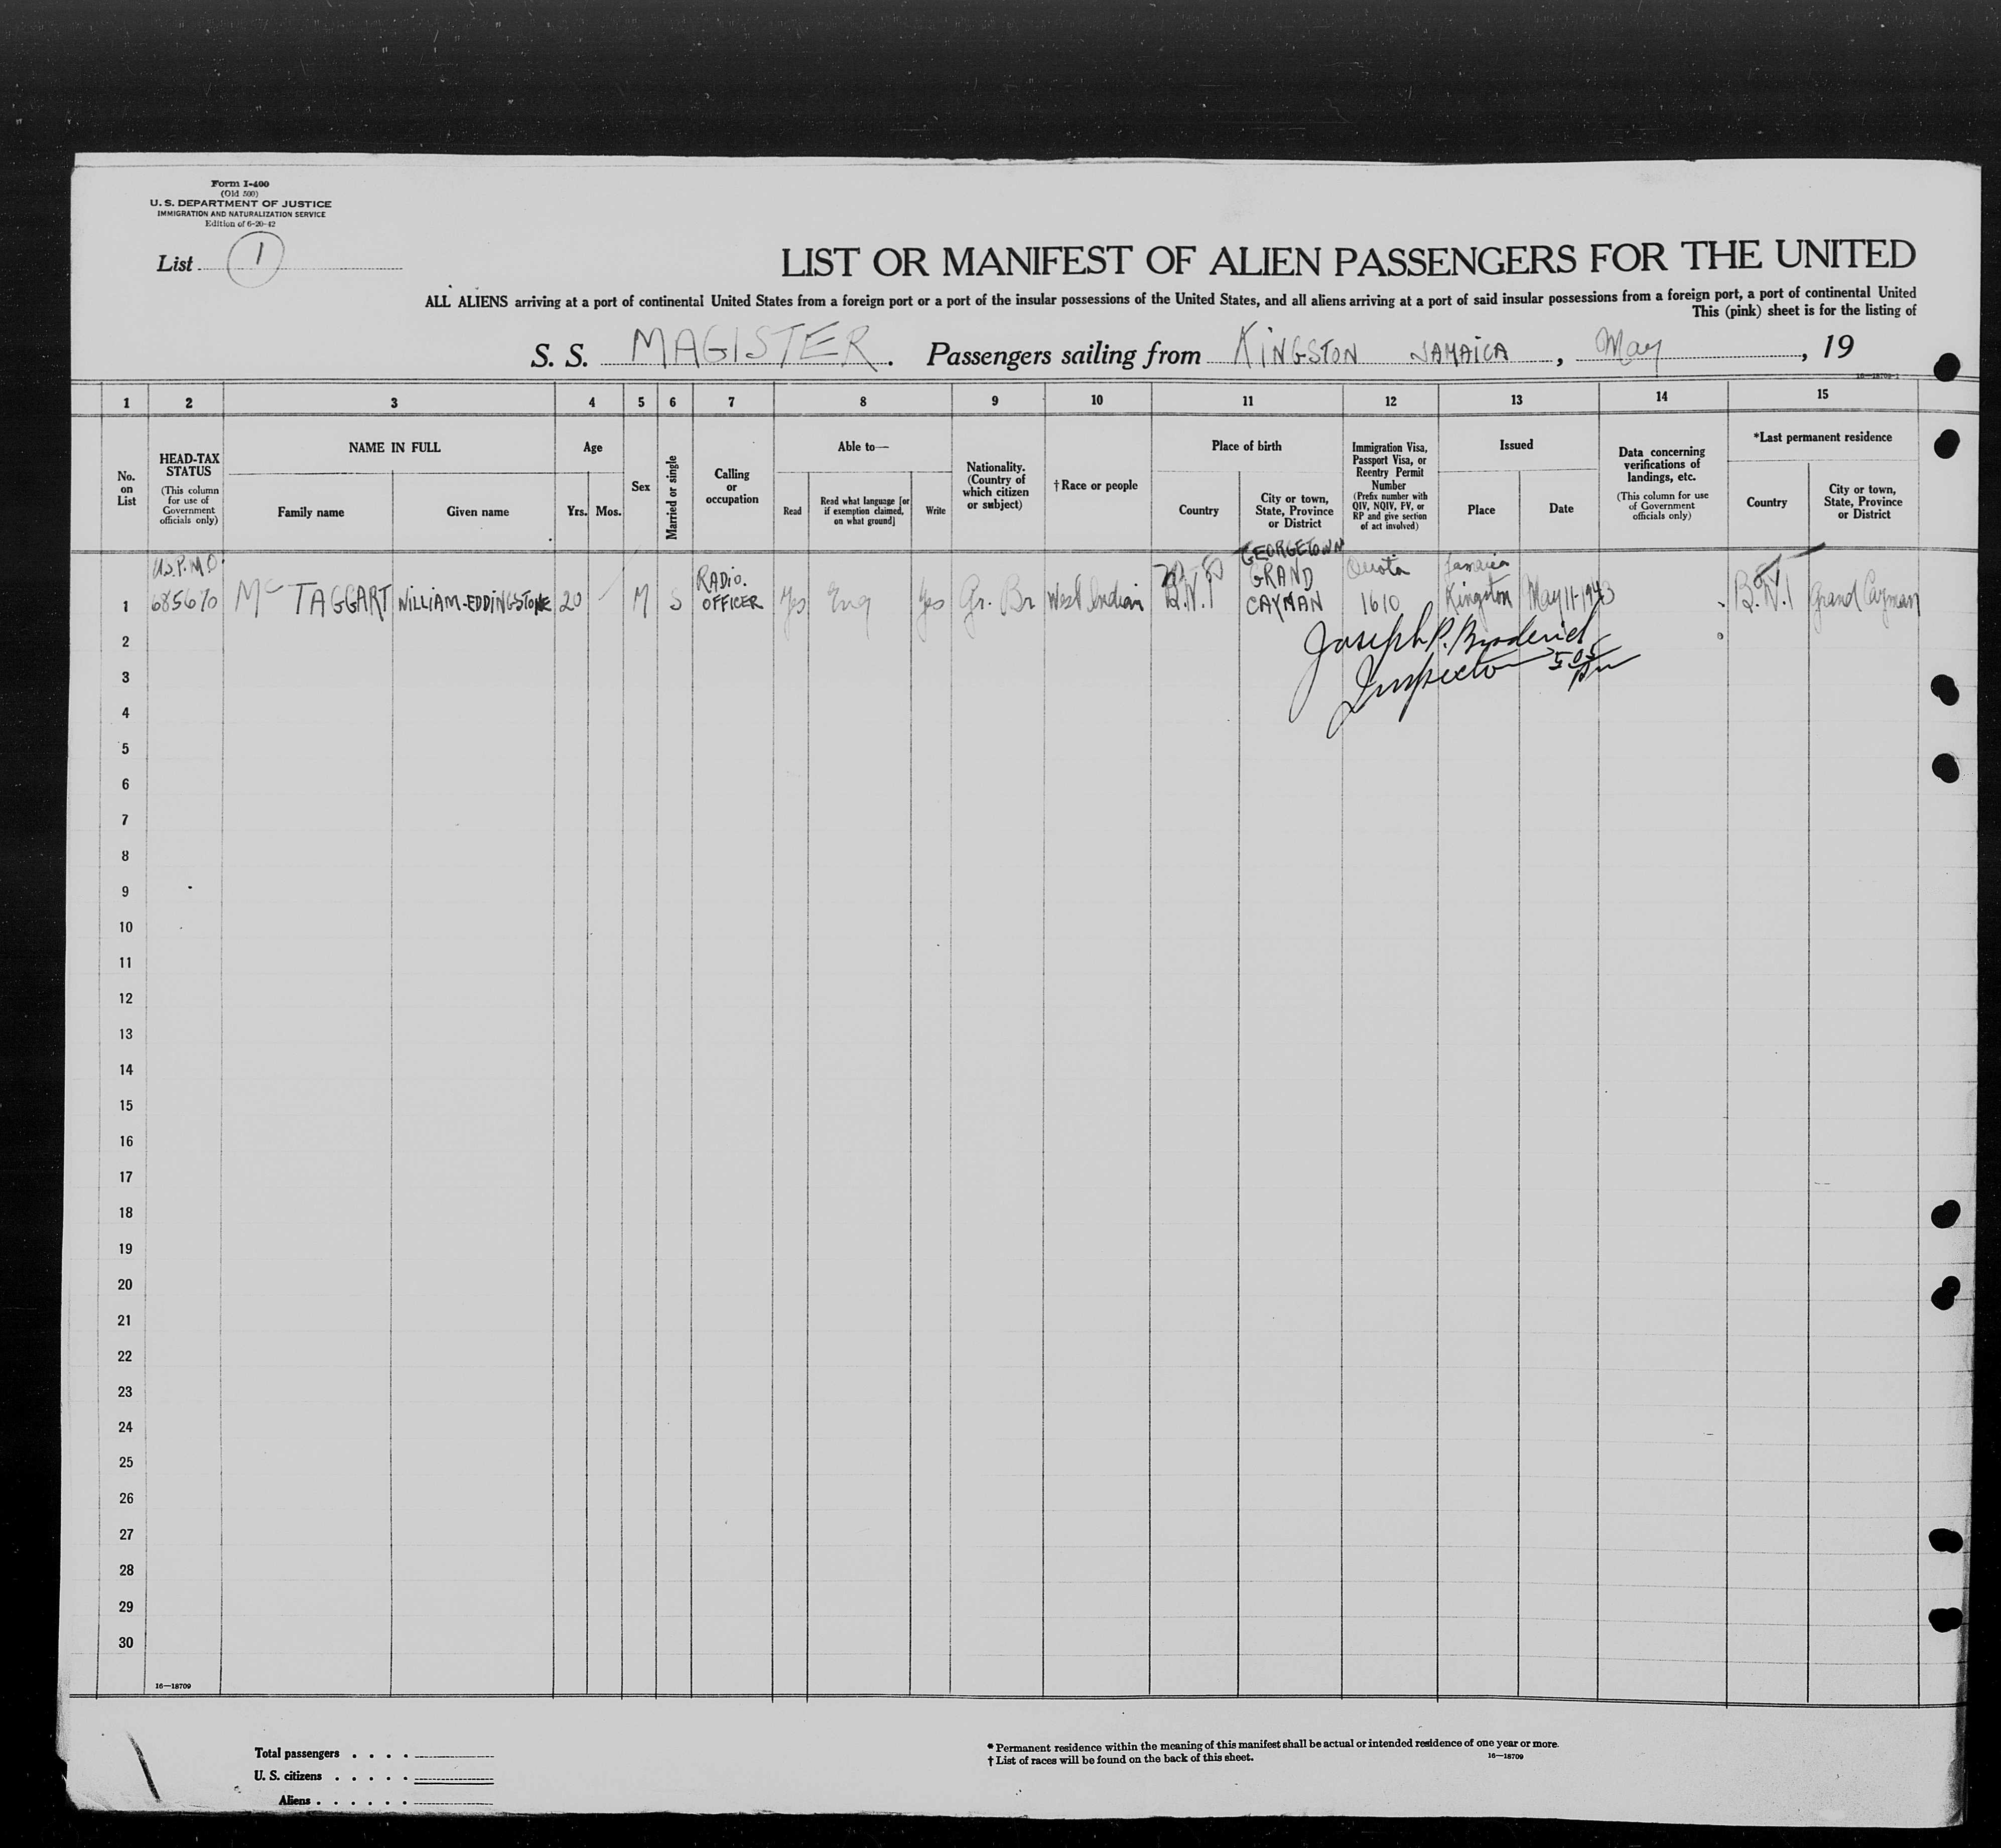 Form I-400
(Old 500)
U. S. DEPARTMENT OF JUSTICE
IMMIGRATION AND NATURALIZATION SERVICE
Edition of 6-20-42
List 1
LIST OR MANIFEST OF ALIEN PASSENGERS FOR THE UNITED
ALL ALIENS arriving at a port of continental United States from a foreign port or a port of the insular possessions of the United States, and all aliens arriving at a port of said insular possessions from a foreign port, a port of continental United
This (pink) sheet is for the listing of
S. S. MAGISTER. Passengers sailing from KINGSTON JAMAICA, May, 19
16—18709-1
1 2 3 4 5 6 7 8 9 10 11 12 13 14 15
No. on List
HEAD-TAX STATUS
(This column for use of Government officials only)
NAME IN FULL
Family name
Given name
Age
Yrs. Mos.
Sex
Married or single
Calling or occupation
Able to—
Read
Read what language [or if exemption claimed, on what ground]
Write
Nationality. (Country of which citizen or subject)
†Race or people
Place of birth
Country
City or town, State, Province or District
Immigration Visa, Passport Visa, or Reentry Permit Number
(Prefix number with QIV, NQIV, PV, or RP and give section of act involved)
Issued
Place
Date
Data concerning verifications of landings, etc.
(This column for use of Government officials only)
*Last permanent residence
Country
City or town, State, Province or District
U.S.P.M.D. GEORGETOWN Quota Jamaica
1 685670 Mc TAGGART WILLIAM-EDDINGSTONE 20 M S RADIO. OFFICER Yes Eng Yes Gr. Br West Indian B.W.I GRAND CAYMAN 1610 Kingston May 11-1943 B.W.I Grand Cayman
Joseph P. Broderick
Inspector
2
3
4
5
6
7
8
9
10
11
12
13
14
15
16
17
18
19
20
21
22
23
24
25
26
27
28
29
30
16—18709
Total passengers . . . .
U. S. citizens . . . . .
Aliens . . . . . .
* Permanent residence within the meaning of this manifest shall be actual or intended residence of one year or more.
† List of races will be found on the back of this sheet.
16—18709